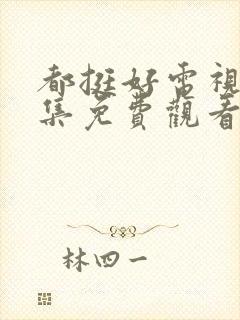 都挺好電視
集免費觀看
林四一